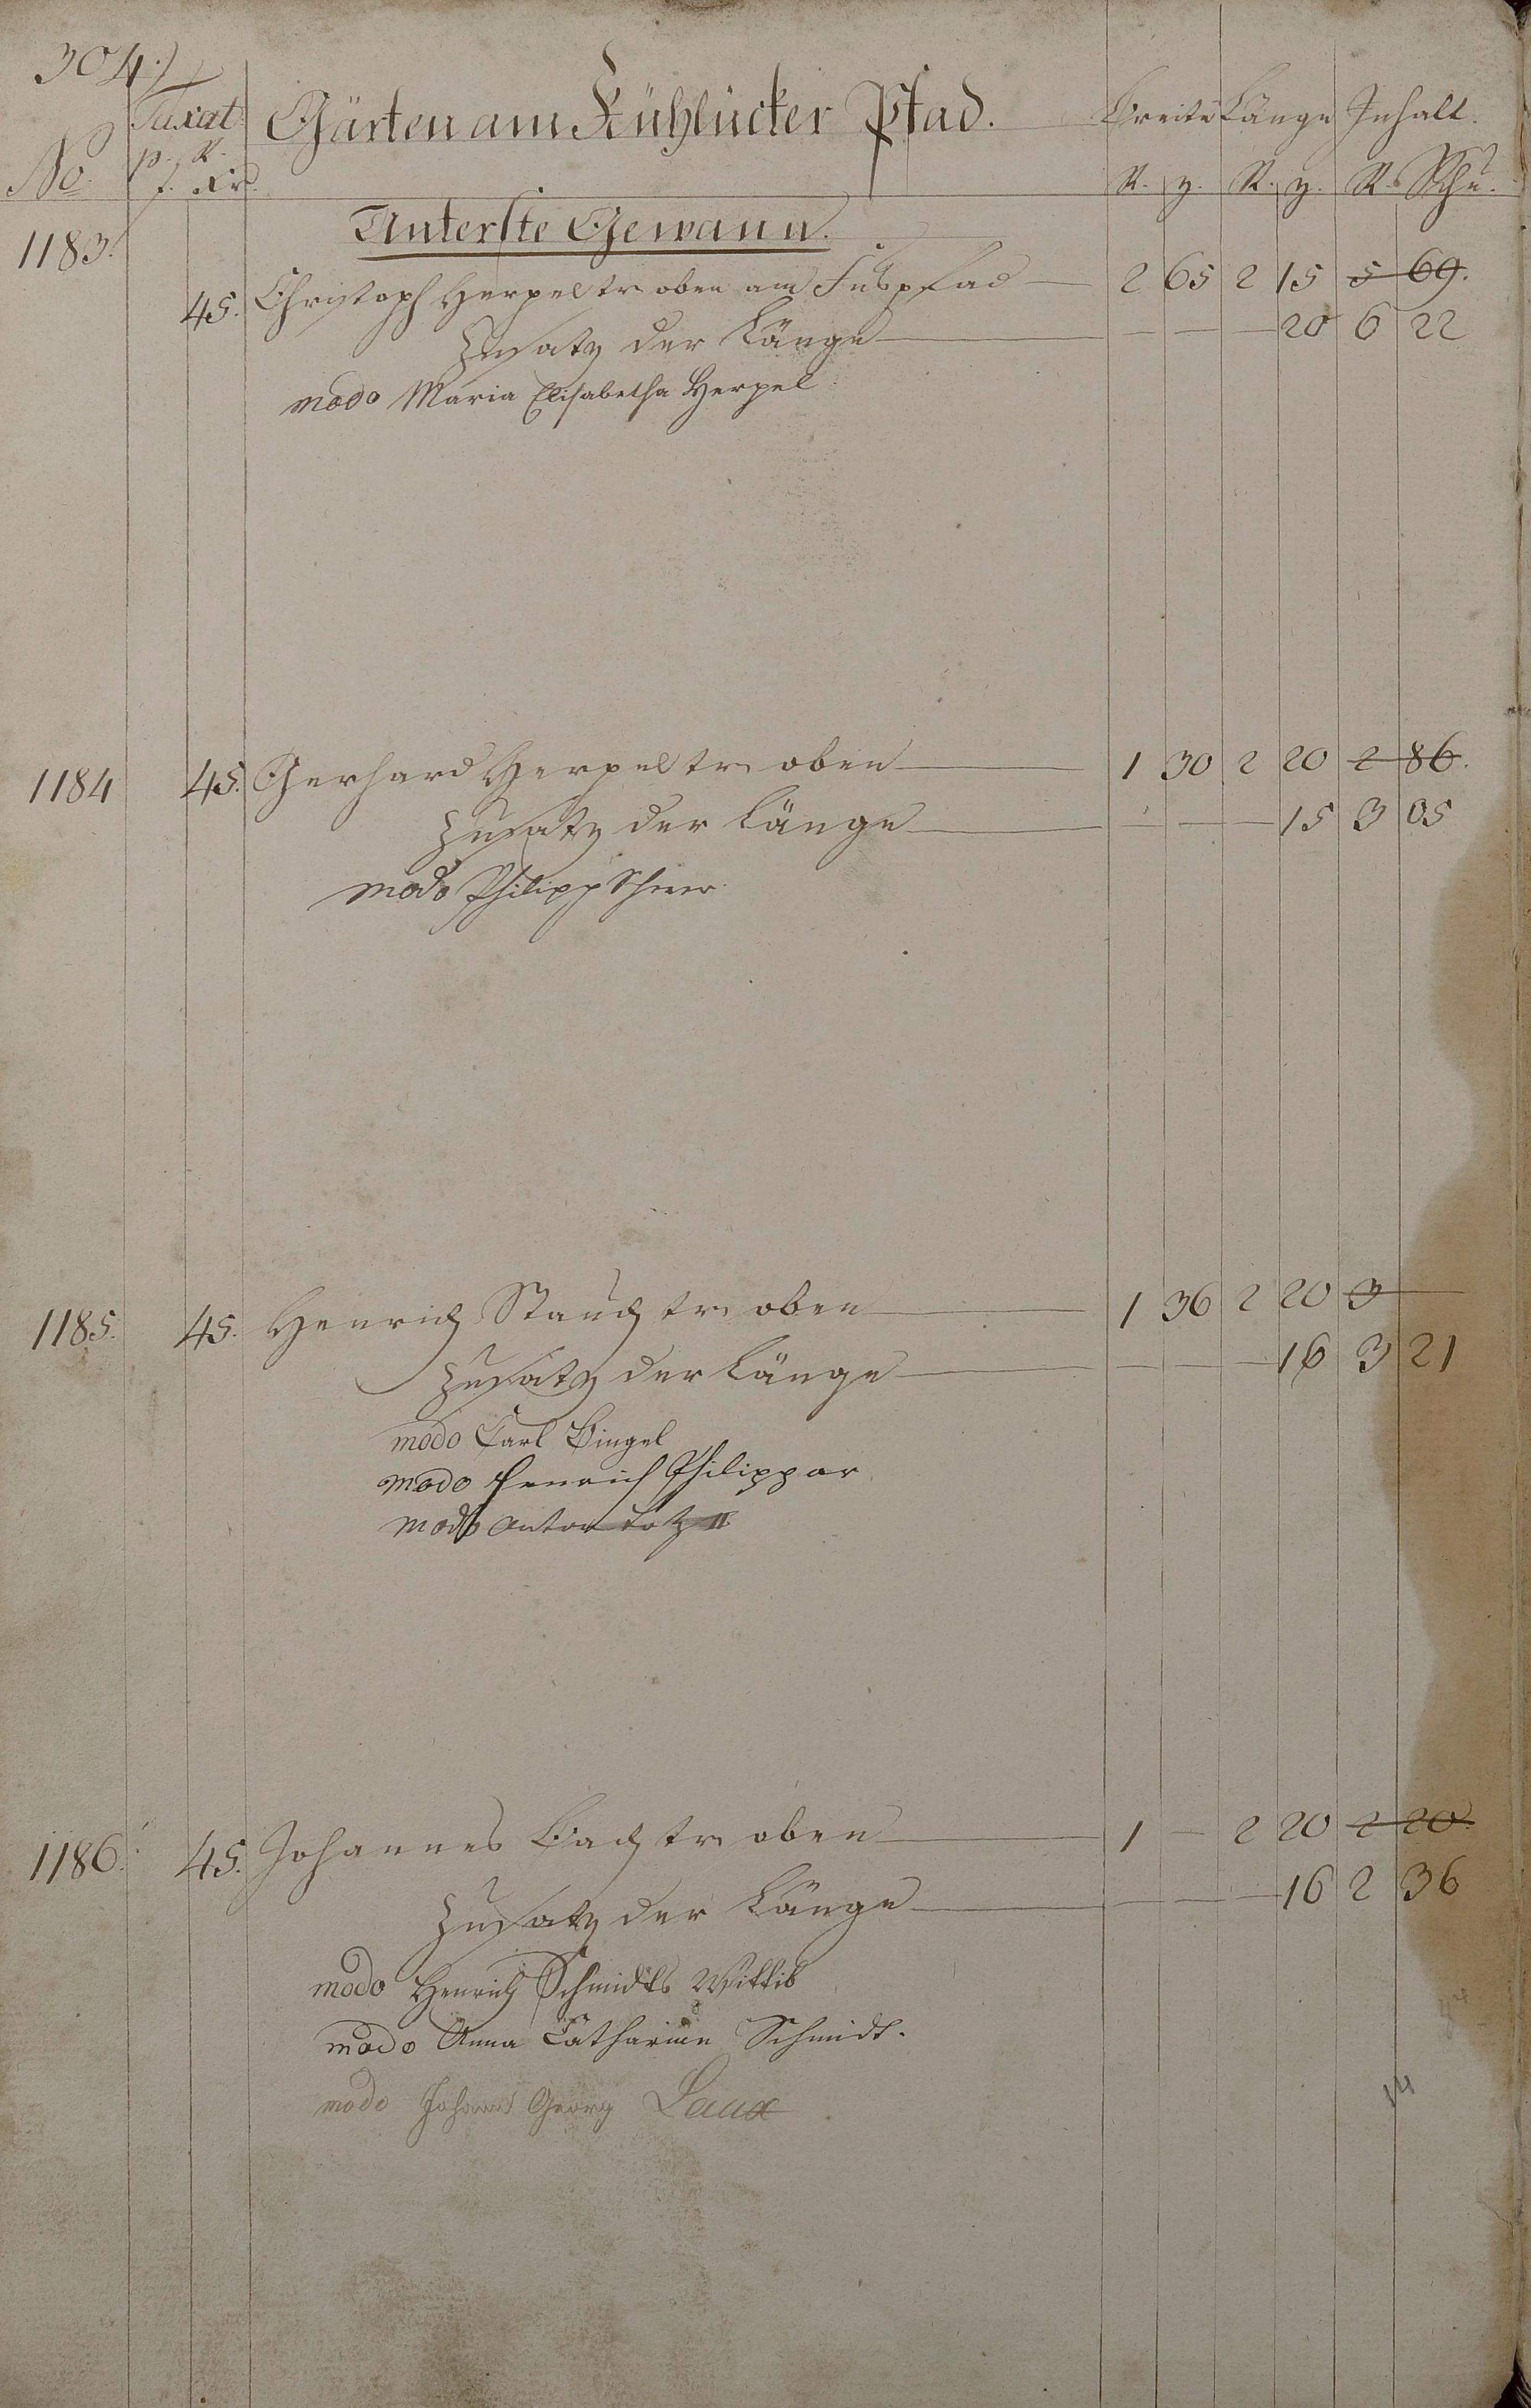 304.)
No. Taxat. p. R. f. Xr. Gärten am Kühlücker Pfad. Breite Länge Inhalt.
R. z. R. z. R. Schu.
Unterste Gewann.
1183. 45. Christoph Herpel tr. oben am Fuspfad 2 65 2 15 5 69.
Zusatz der Länge 20 6 22
modo Maria Elisabetha Herpel
1184 45. Gerhard Herpel tr. oben 1 30 2 20 2 86.
Zusatz der Länge 15 3 05
modo Philipp
1185. 45. Henrich Stauch tr. oben 1 36 2 20 3
Zusatz der Länge 16 3 21
modo Carl Bingel
modo Henrich Philippar
modo Anton Lotz II
1186. 45. Johannes Bach tr. oben 1 – 2 20 2 20
Zusatz der Länge 16 2 36
modo Henrich Schmidts Wittib
modo Anna Catharine Schmidt.
modo Johann Georg Laux
14